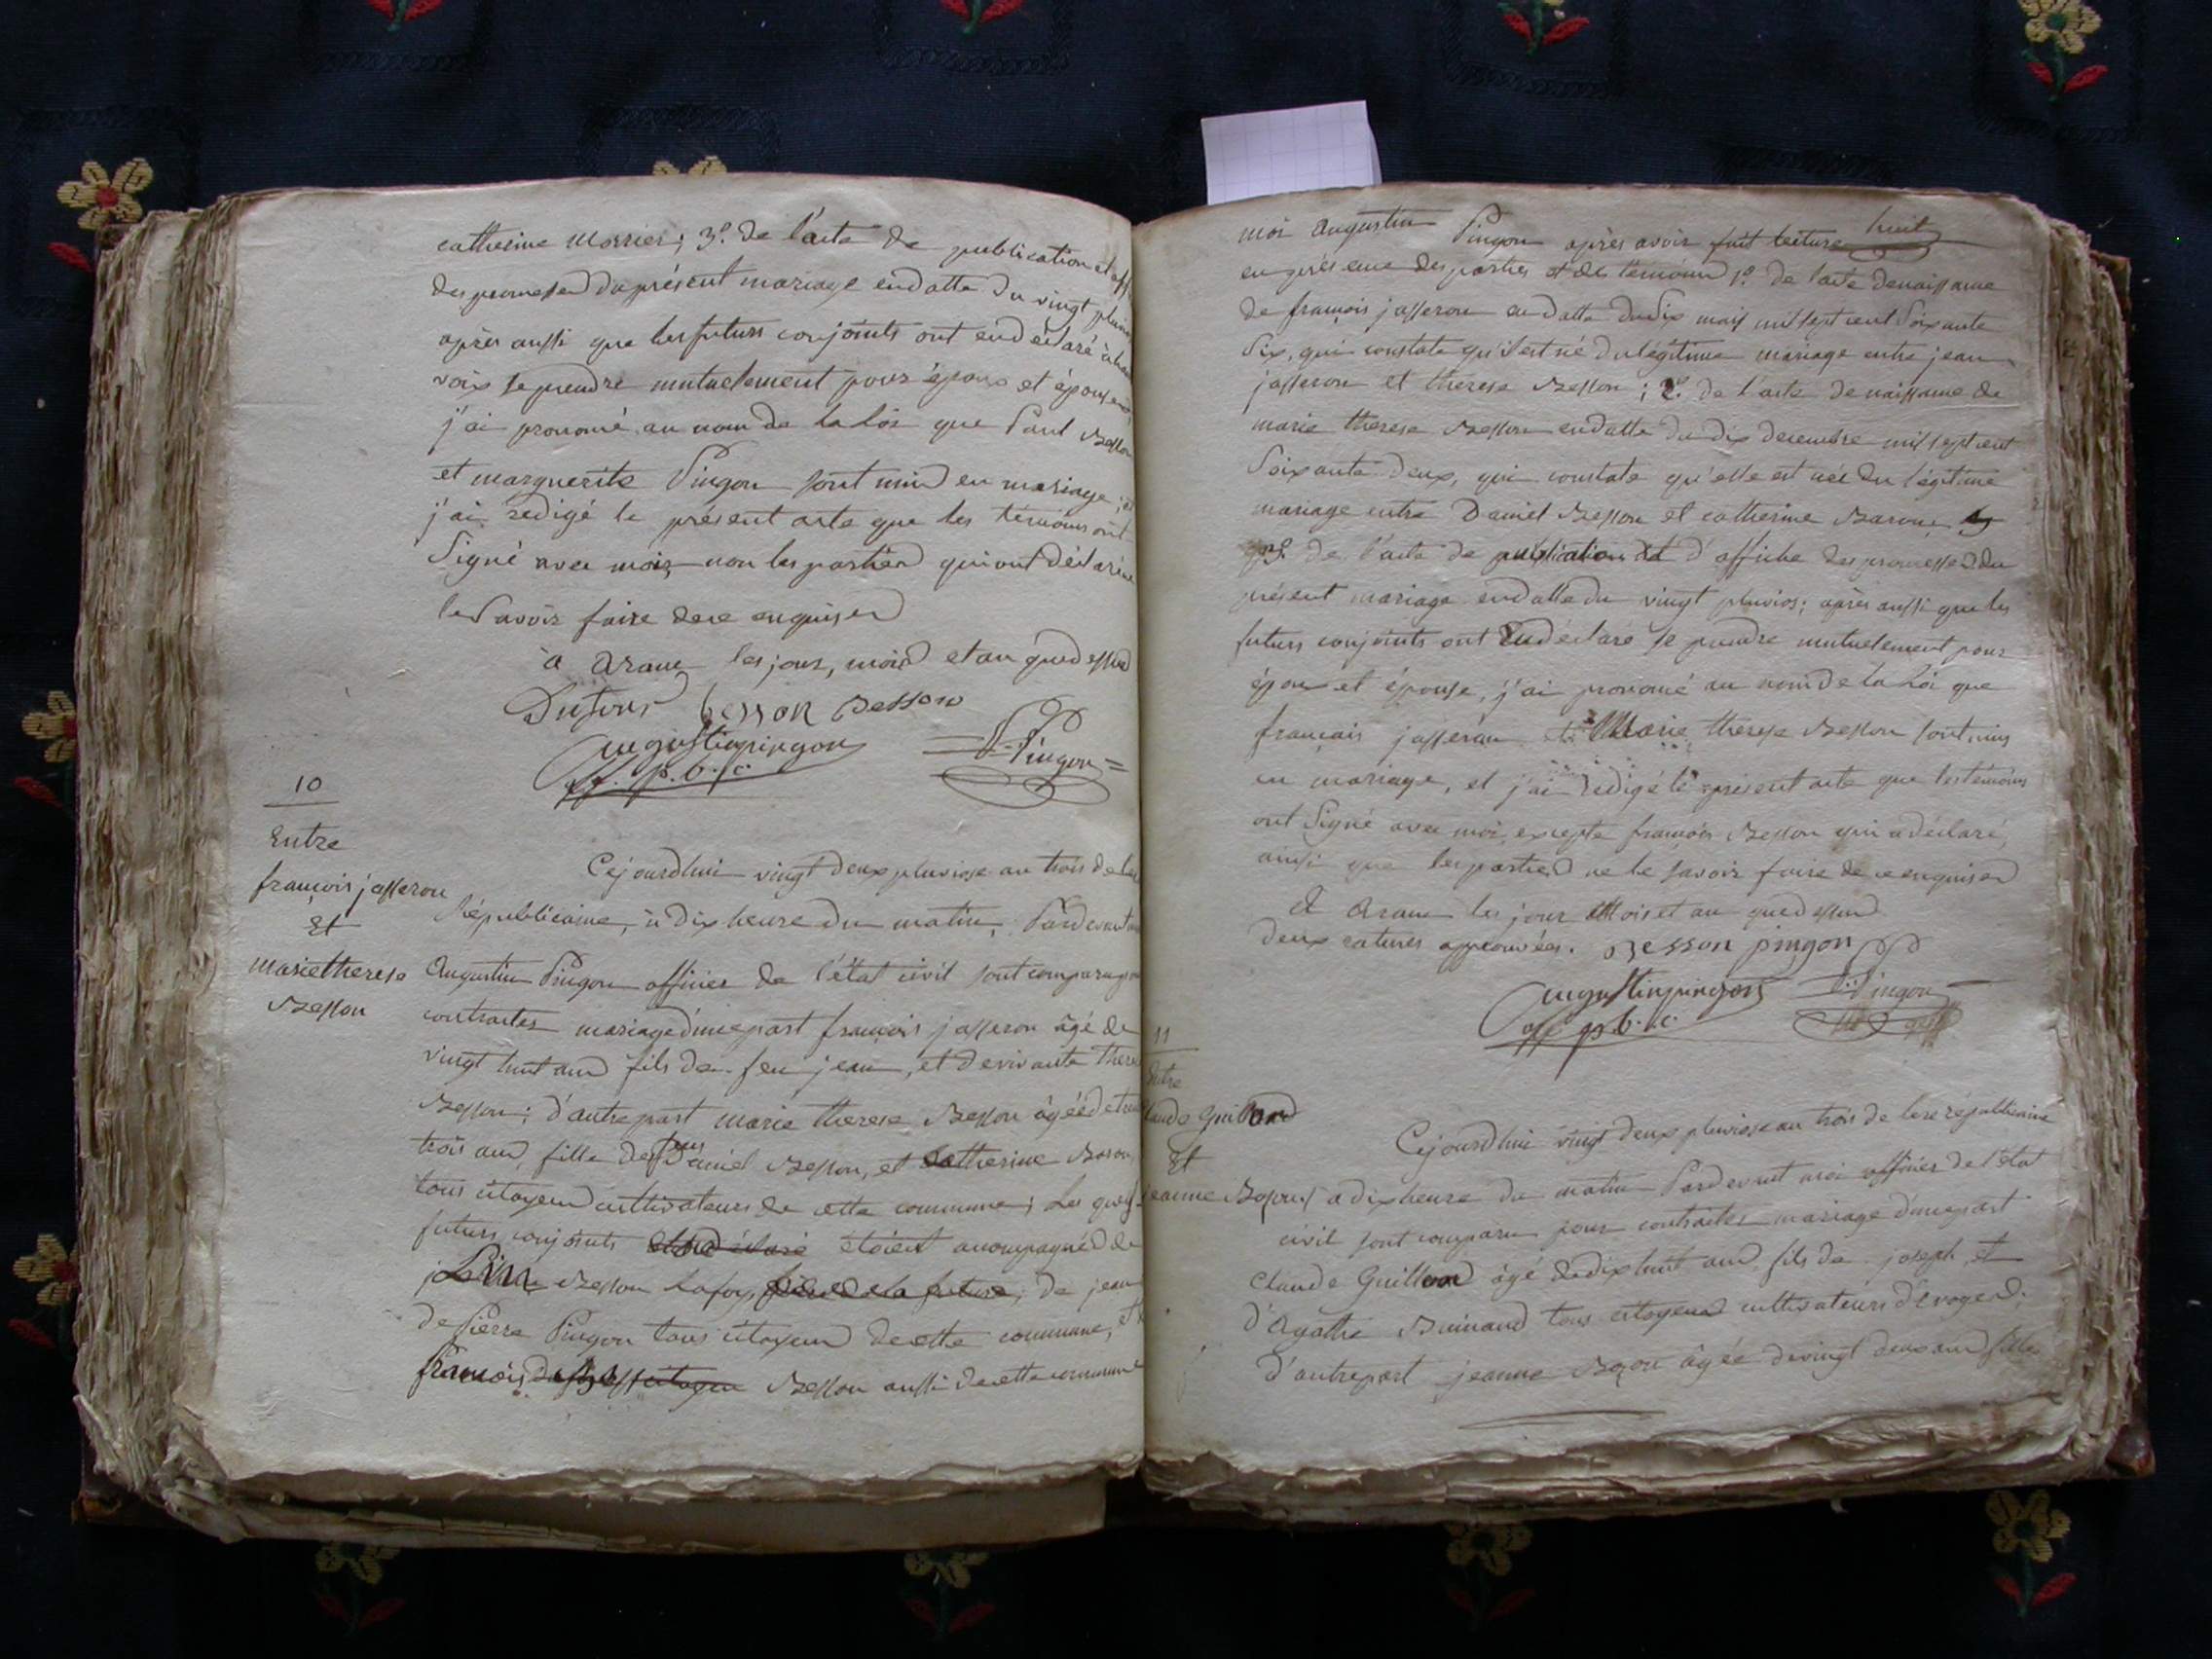 catherine Morrier; 3.º de l'acte de publication et aff
des promesses du présent mariage en datte du vingt pluvio
après aussi que les futurs conjoints ont eu déclaré à hau
voix se prendre mutuelement pour époux et épouse
j'ai prononcé au nom de la loi que Paul Besson
et marguerite Pingon sont unis en mariage; et
j'ai redigé le présent acte que les témoins ont
Signé avec moi, non les parties qui ont déclaré ne
le Savoir faire de ce enquises
à arane les jour, mois et an que dessus
Dufour besson Besson
augustinpingon P. Pingon
off. p.b.c.
10
Entre
françois jasseron
Et
marie therese
Besson
Cejourdhui vingt deux pluviose an trois de la
Républicaine, à dix heure du matin, Pardevant
Augustin Pingon officier de l'état civil sont comparu pou
contracter mariage d'une part françois jasseron âgé de
vingt huit ans fils de feu jean, et de vivante there
Besson; d'autre part marie therese Besson âgée de tren
trois ans, fille de feus Daniel Besson, et Catherine Baron
tous citoyens cultivateurs de cette commune; Les quels
futurs conjoints étoient acompagnés de
Besson Lafoy, frere de la future; de jean
de Pierre Pingon tous citoyens de cette commune, et
françois citoyen Besson aussi de cette commune
huit
moi augustin Pingon après avoir fait lecture
en présence des parties et des témoins 1.º de l'acte de naissance
de françois jasseron en datte du Six mars mil sept cent Soixante
Six, qui constate qu'il est né du légitime mariage entre jean
jasseron et therese Besson; 2.º de l'acte de naissance de
marie therese Besson en datte du dix decembre mil sept cent
Soixante deux, qui constate qu'elle est née du légitime
mariage entre Daniel Besson et catherine Baron
3.º de l'acte de publication et d'affiche des promesses du
présent mariage en datte du vingt pluvios; après aussi que les
futurs conjoints ont eu déclaré se prendre mutuelement pour
époux et épouse, j'ai prononcé au nom de la Loi que
françois jasseron et Marie therese Besson sont unis
en mariage, et j'ai redigé le présent acte que les témoins
ont Signé avec moi, excepte françois Besson qui a déclaré,
ainsi que les parties ne le savoir faire de ce enquises
A arane les jour Mois et an que dessus
deux ratures approuvées. Besson pingon
augustinpingon P. Pingon
off. p.b.c.
11
Entre
laude Guilland
Et
jeanne Bozon
Cejourdhui vingt deux pluviose an trois de lere républicaine
a dix heure du matin Pardevant moi officier de l'état
civil sont comparu pour contracter mariage d'une part
Claude Guilland âgé de dix huit ans, fils de joseph, et
d'Agathe Buinand tous citoyens cultivateurs d'Evoges;
d'autre part jeanne Bozon âgée de vingt deux ans fille